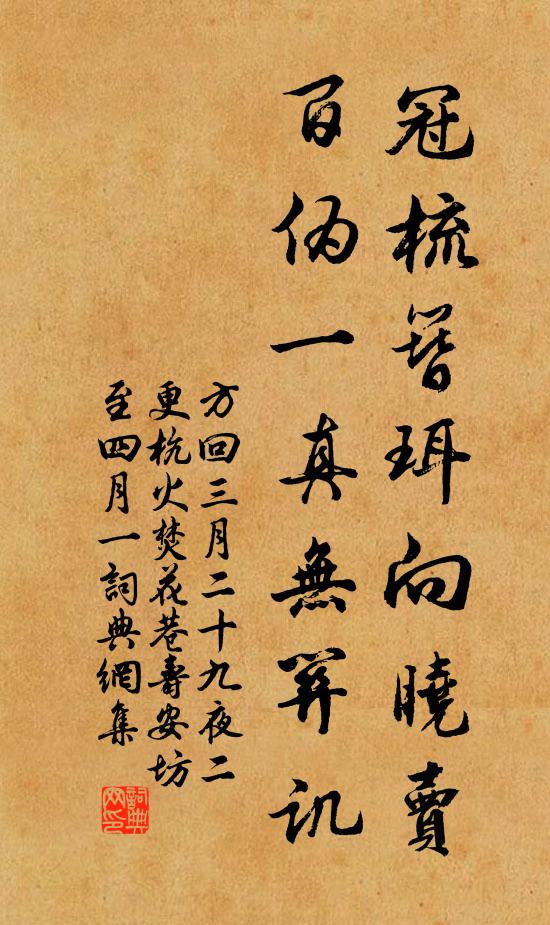 冠梳簪珥向曉賣
百伪一真無笄讥
方回三月二十九夜二
更杭火焚花巷壽安坊
至四月一詞典網集